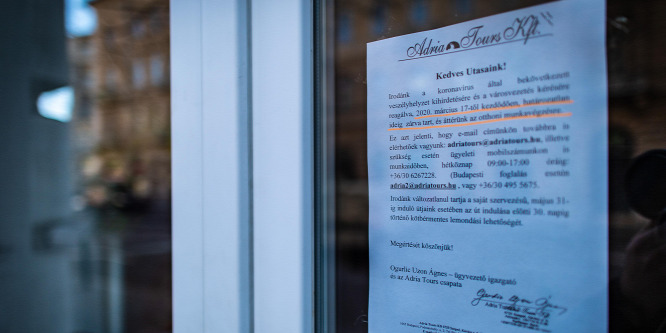 Adria Tours Kft.
Kedves Utasaink!
Irodánk a koronavírus által bekövetkezett
veszélyhelyzet kihirdetésére és a városvezetés kérésére
reagálva, 2020. március 17-től kezdődően, határozatlan
ideig zárva tart, és áttérünk az otthoni munkavégzésre.
Ez azt jelenti, hogy e-mail címünkön továbbra is
elérhetőek vagyunk: adriatours@adriatours.hu, illetve
szükség esetén ügyeleti mobilszámunkon is
munkaidőben, hétköznap 09:00-17:00 óráig:
+36/30 6267228. (Budapesti foglalás esetén
adria2@adriatours.hu, vagy +36/30 495 5675.
Irodánk változatlanul tartja a saját szervezésű, május 31-
ig induló útjaink esetében az út indulása előtti 30. napig
történő kötbérmentes lemondási lehetőségét.
Megértését köszönjük!
Ogurlic Uzon Ágnes – ügyvezető igazgató
és az Adria Tours csapata